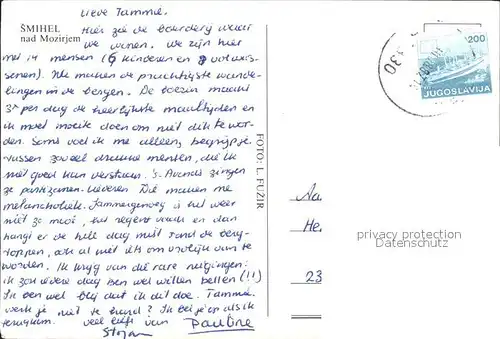 ŠMIHEL
nad Mozirjem
Lieve Tamme.
Hier zie de boerderij waar
we wonen. We zijn hier
met 14 mensen (6 kinderen en 8 volwas-
senen). We maken de prachtigste wande-
lingen in de bergen. De boerin maakt
3x per dag de heerlijkste maaltijden en
ik moet moeite doen om niet dik te wor-
den. Soms voel ik me alleen,
tussen zoveel mensen, die ik
niet goed kan verstaan. 's Avonds zingen
ze partizanen-liederen. Die maken me
melancholiek. is het weer
niet zo mooi, het regent vaak en dan
hangt er de hele dag mist rond de berg-
toppen,
worden. Ik krijg van die rare neigingen:
ik zou iedere dag Ben wel willen bellen (!!)
Ik ben wel blij dat ik dit doe. Tamme,
werk je niet te hard? Ik bel je als ik
terugkom. veel liefs van Pauline
Stojan
FOTO: L. FUŽIR
200
JUGOSLAVIJA
Aa
He
23
privat protected
Datenschutz